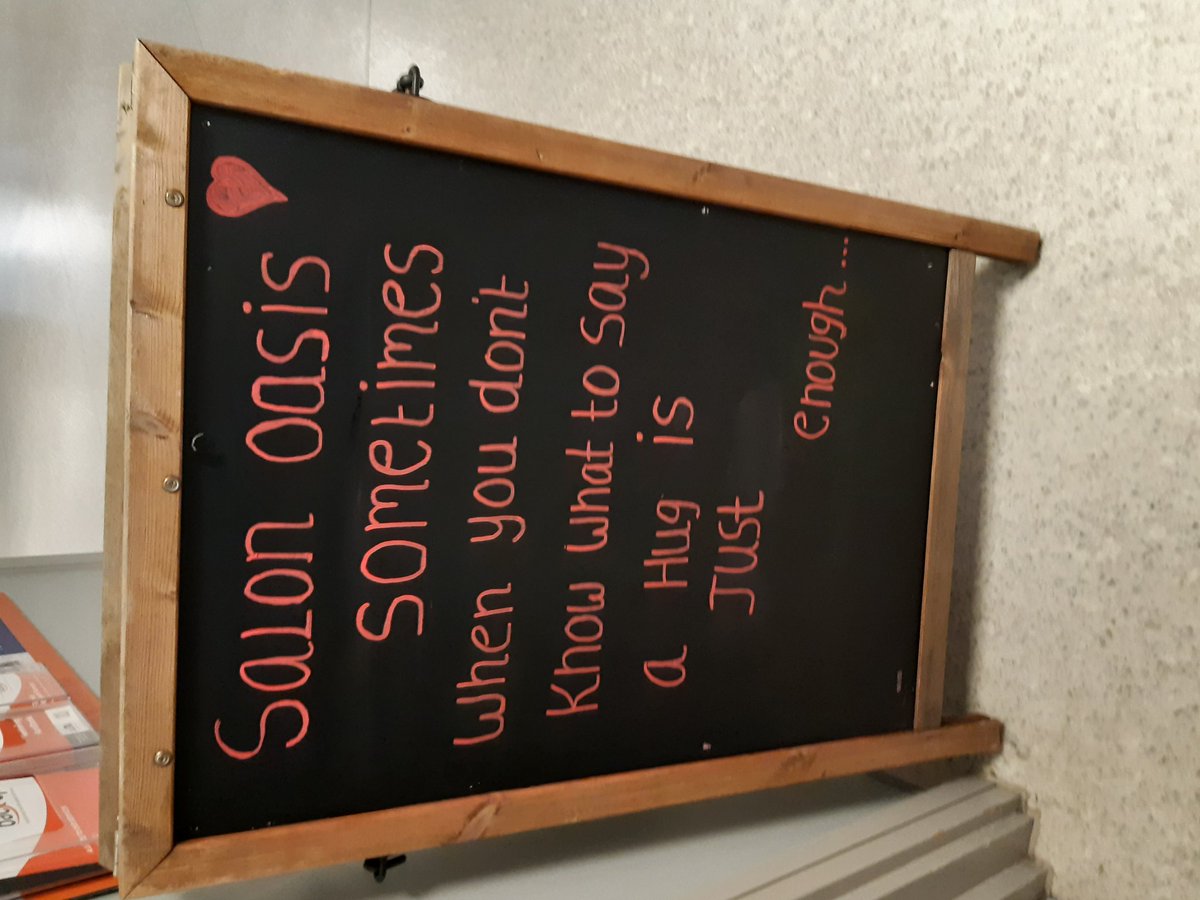 Salon Oasis
Sometimes
When you don't
Know What to Say
a Hug is
Just
enough...